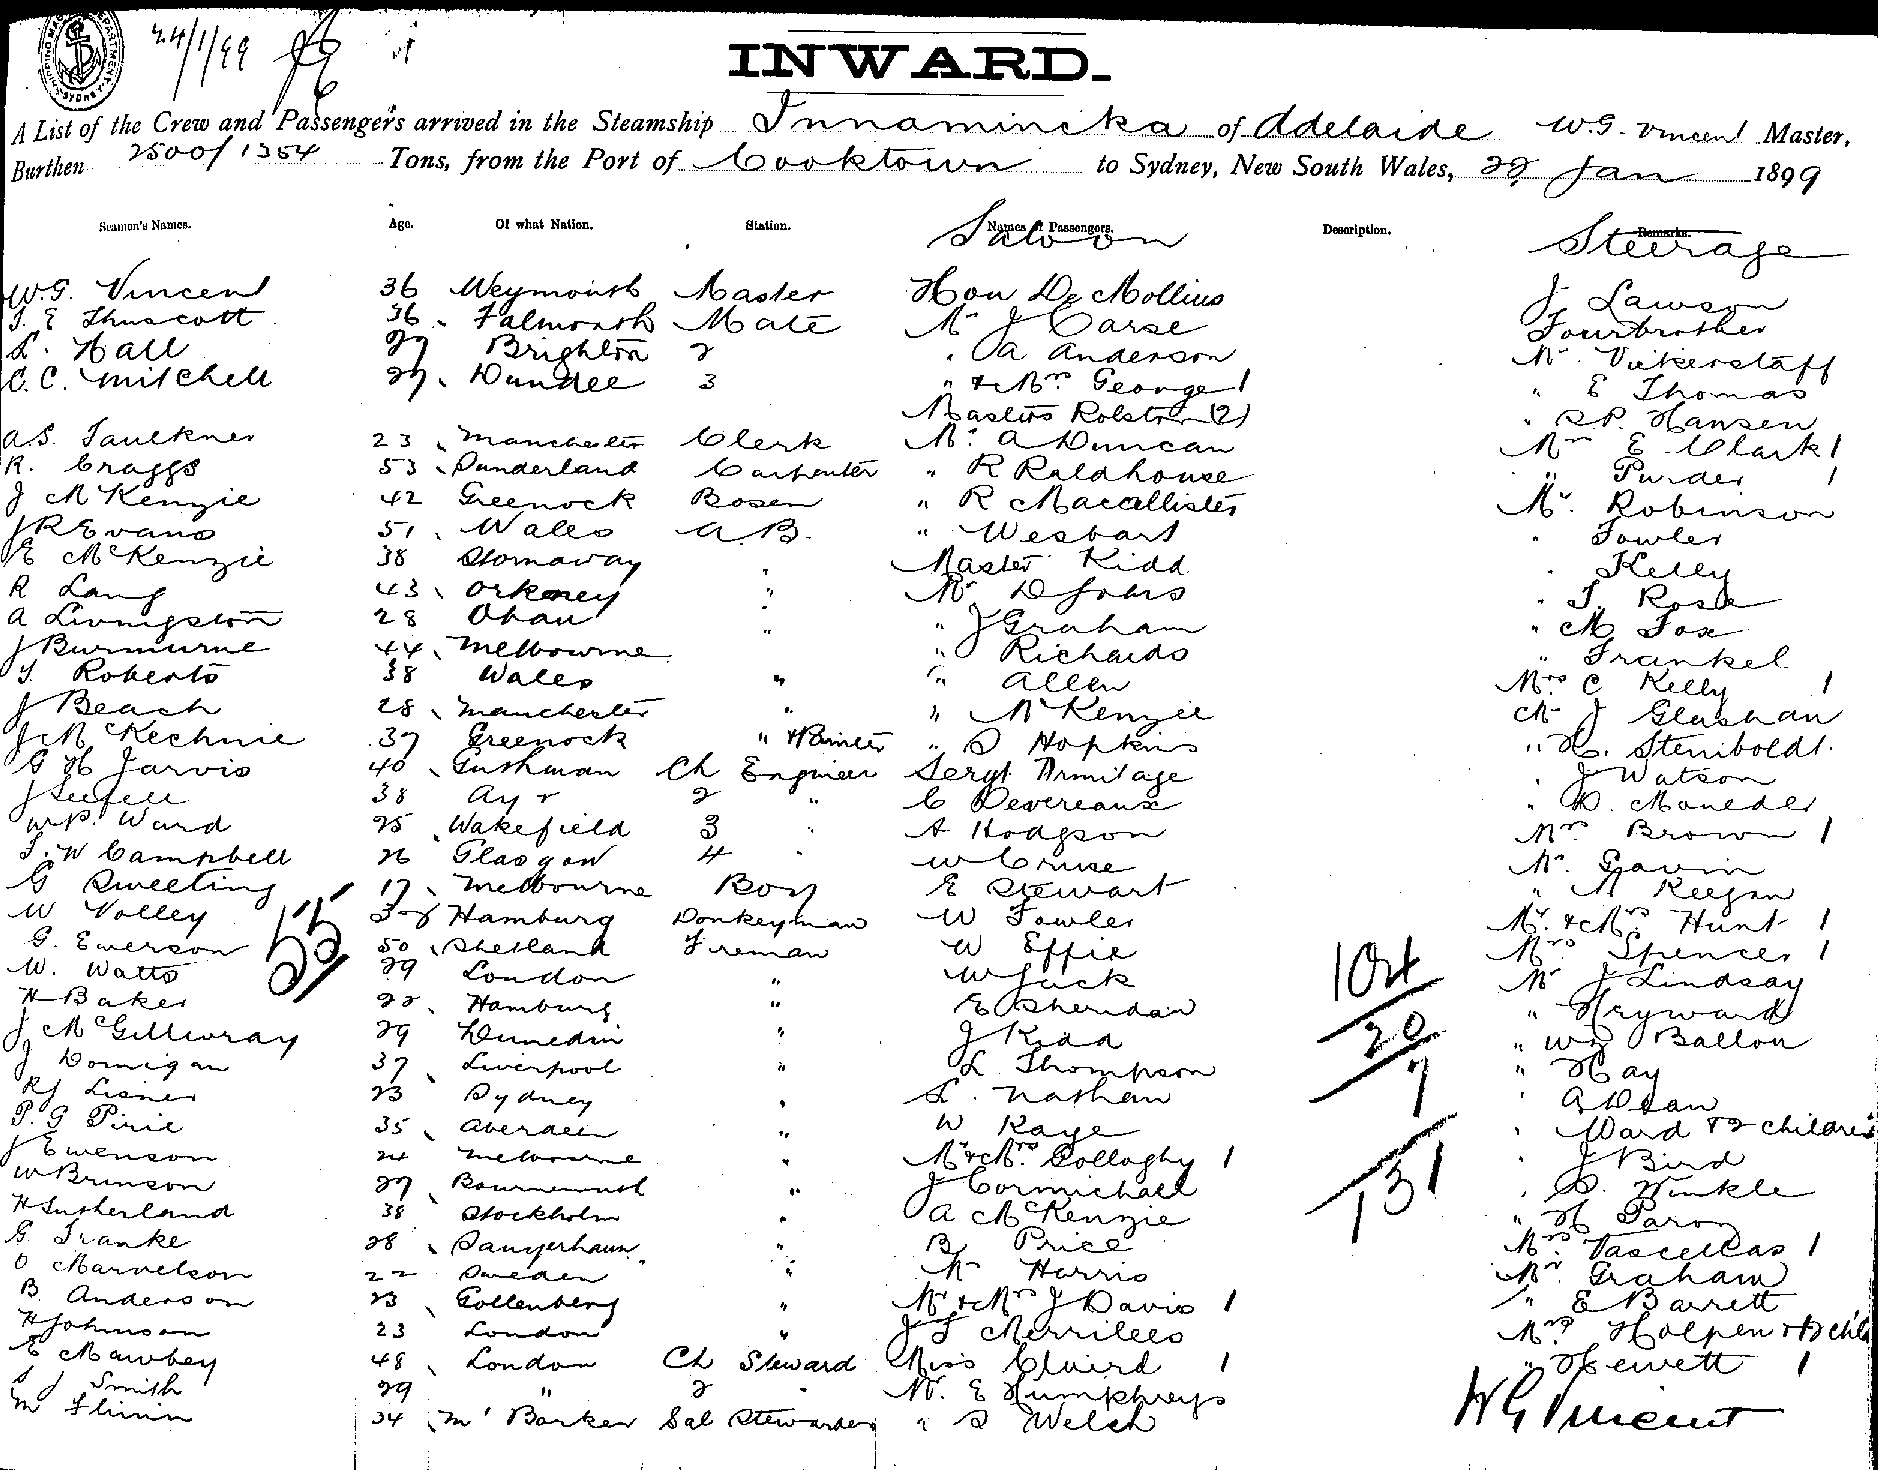 24/1/99
INWARD.
A List of the Crew and Passengers arrived in the Steamship Innamincka of Adelaide W.G. Vincent Master,
Burthen 2500/1354 Tons, from the Port of Cooktown to Sydney, New South Wales, 22 Jan 1899
Seamen's Names. Age. Of what Nation. Station. Names of Passengers. Description. Remarks.
Saloon Steerage
W.G. Vincent 36 Weymouth Master Hon De Mollius J Lawson
T. E Thuscott 36 Falmouth Mate Mr J Carse Fourbrother
L. Hall 27 Brighton 2 " A Anderson Mr Vickerstaff
C. C. Mitchell 27 Dundee 3 " & Mrs George 1 " E Thomas
Masters Rolston (2) " P. Hansen
A.S. Faulkner 23 Manchester Clerk Mr A Duncan Mrs E. Clark 1
R. Craggs 53 Sunderland Carpenter " R Raldhouse " Purder 1
J McKenzie 42 Greenock Bosen " R Macallister Mr. Robinson
J R Evans 51 Wales A.B. " Wesbart " Fowler
E McKenzie 38 Stornaway " Master Kidd " Kelly
R Lang 43 Orkney " Mr D Johns " T. Rose
A Livingston 28 Oban " " J Graham " M Fox
J Burmurne 44 Melbourne " Richards " Frankel
T. Roberts 38 Wales " " Allen Mrs C Kelly 1
J Beach 28 Manchester " " McKenzie Mr J Glashan
J McKechnie 37 Greenock " " S Hopkins " H. Steniboldt.
G H Jarvis 40 Ch Engineer Sergt Armitage " J Watson
J 38 Ayr 2 " C Devereaux " D.
W.P. Ward 25 Wakefield 3 " A Hodgson Mrs Brown 1
T. W Campbell 26 Glasgow 4 " W Cruse Mr Gavin
G Sweeting 17 Melbourne Boy E Stewart " M Keegan
W Volley 38 Hamburg Donkeyman W Fowler Mr. & Mrs Hunt 1
G. Emerson 50 Shetland Fireman W Effie Mrs Spencer 1
W. Watts 29 London " W Jack Mr J Lindsay
H Baker 22 Hamburg " E Sheridan " Heyward
J McGillivray 29 Dunedin " J Kidd " Ballon
J Dornigan 37 Liverpool " L Thompson " Hay
R J Lisner 23 Sydney " L. Nathan " A Dean
P. G Pirie 35 Aberdeen " W Kaye " Ward & 2 children
J Ewenson 24 Melbourne " Mr & Mrs Gollaghy 1 " J Bird
W Brinson 27 Bournemouth " J Cormichael " S. Winkle
H Sutherland 38 Stockholm " A McKenzie " H Paron
G. Franke 28 Sangerhaun " B Price Mrs Vascellas 1
O Marvelson 22 Sweden " Mr Harris Mr. Graham
B. Anderson 23 Gottenberg " Mr & Mrs J Davis 1 " E Barrett
H Johnson 23 London " J T Merrilees Mrs Holpen & 2 chil
E Mawbey 48 London Ch Steward Miss Cluird 1 " Hewett 1
J Smith 29 " 2 " Mr. E Humphreys
M Flinin 34 Mt Barker Sal Stewardess " S Welch
55
104
20
7
131
W G Vincent